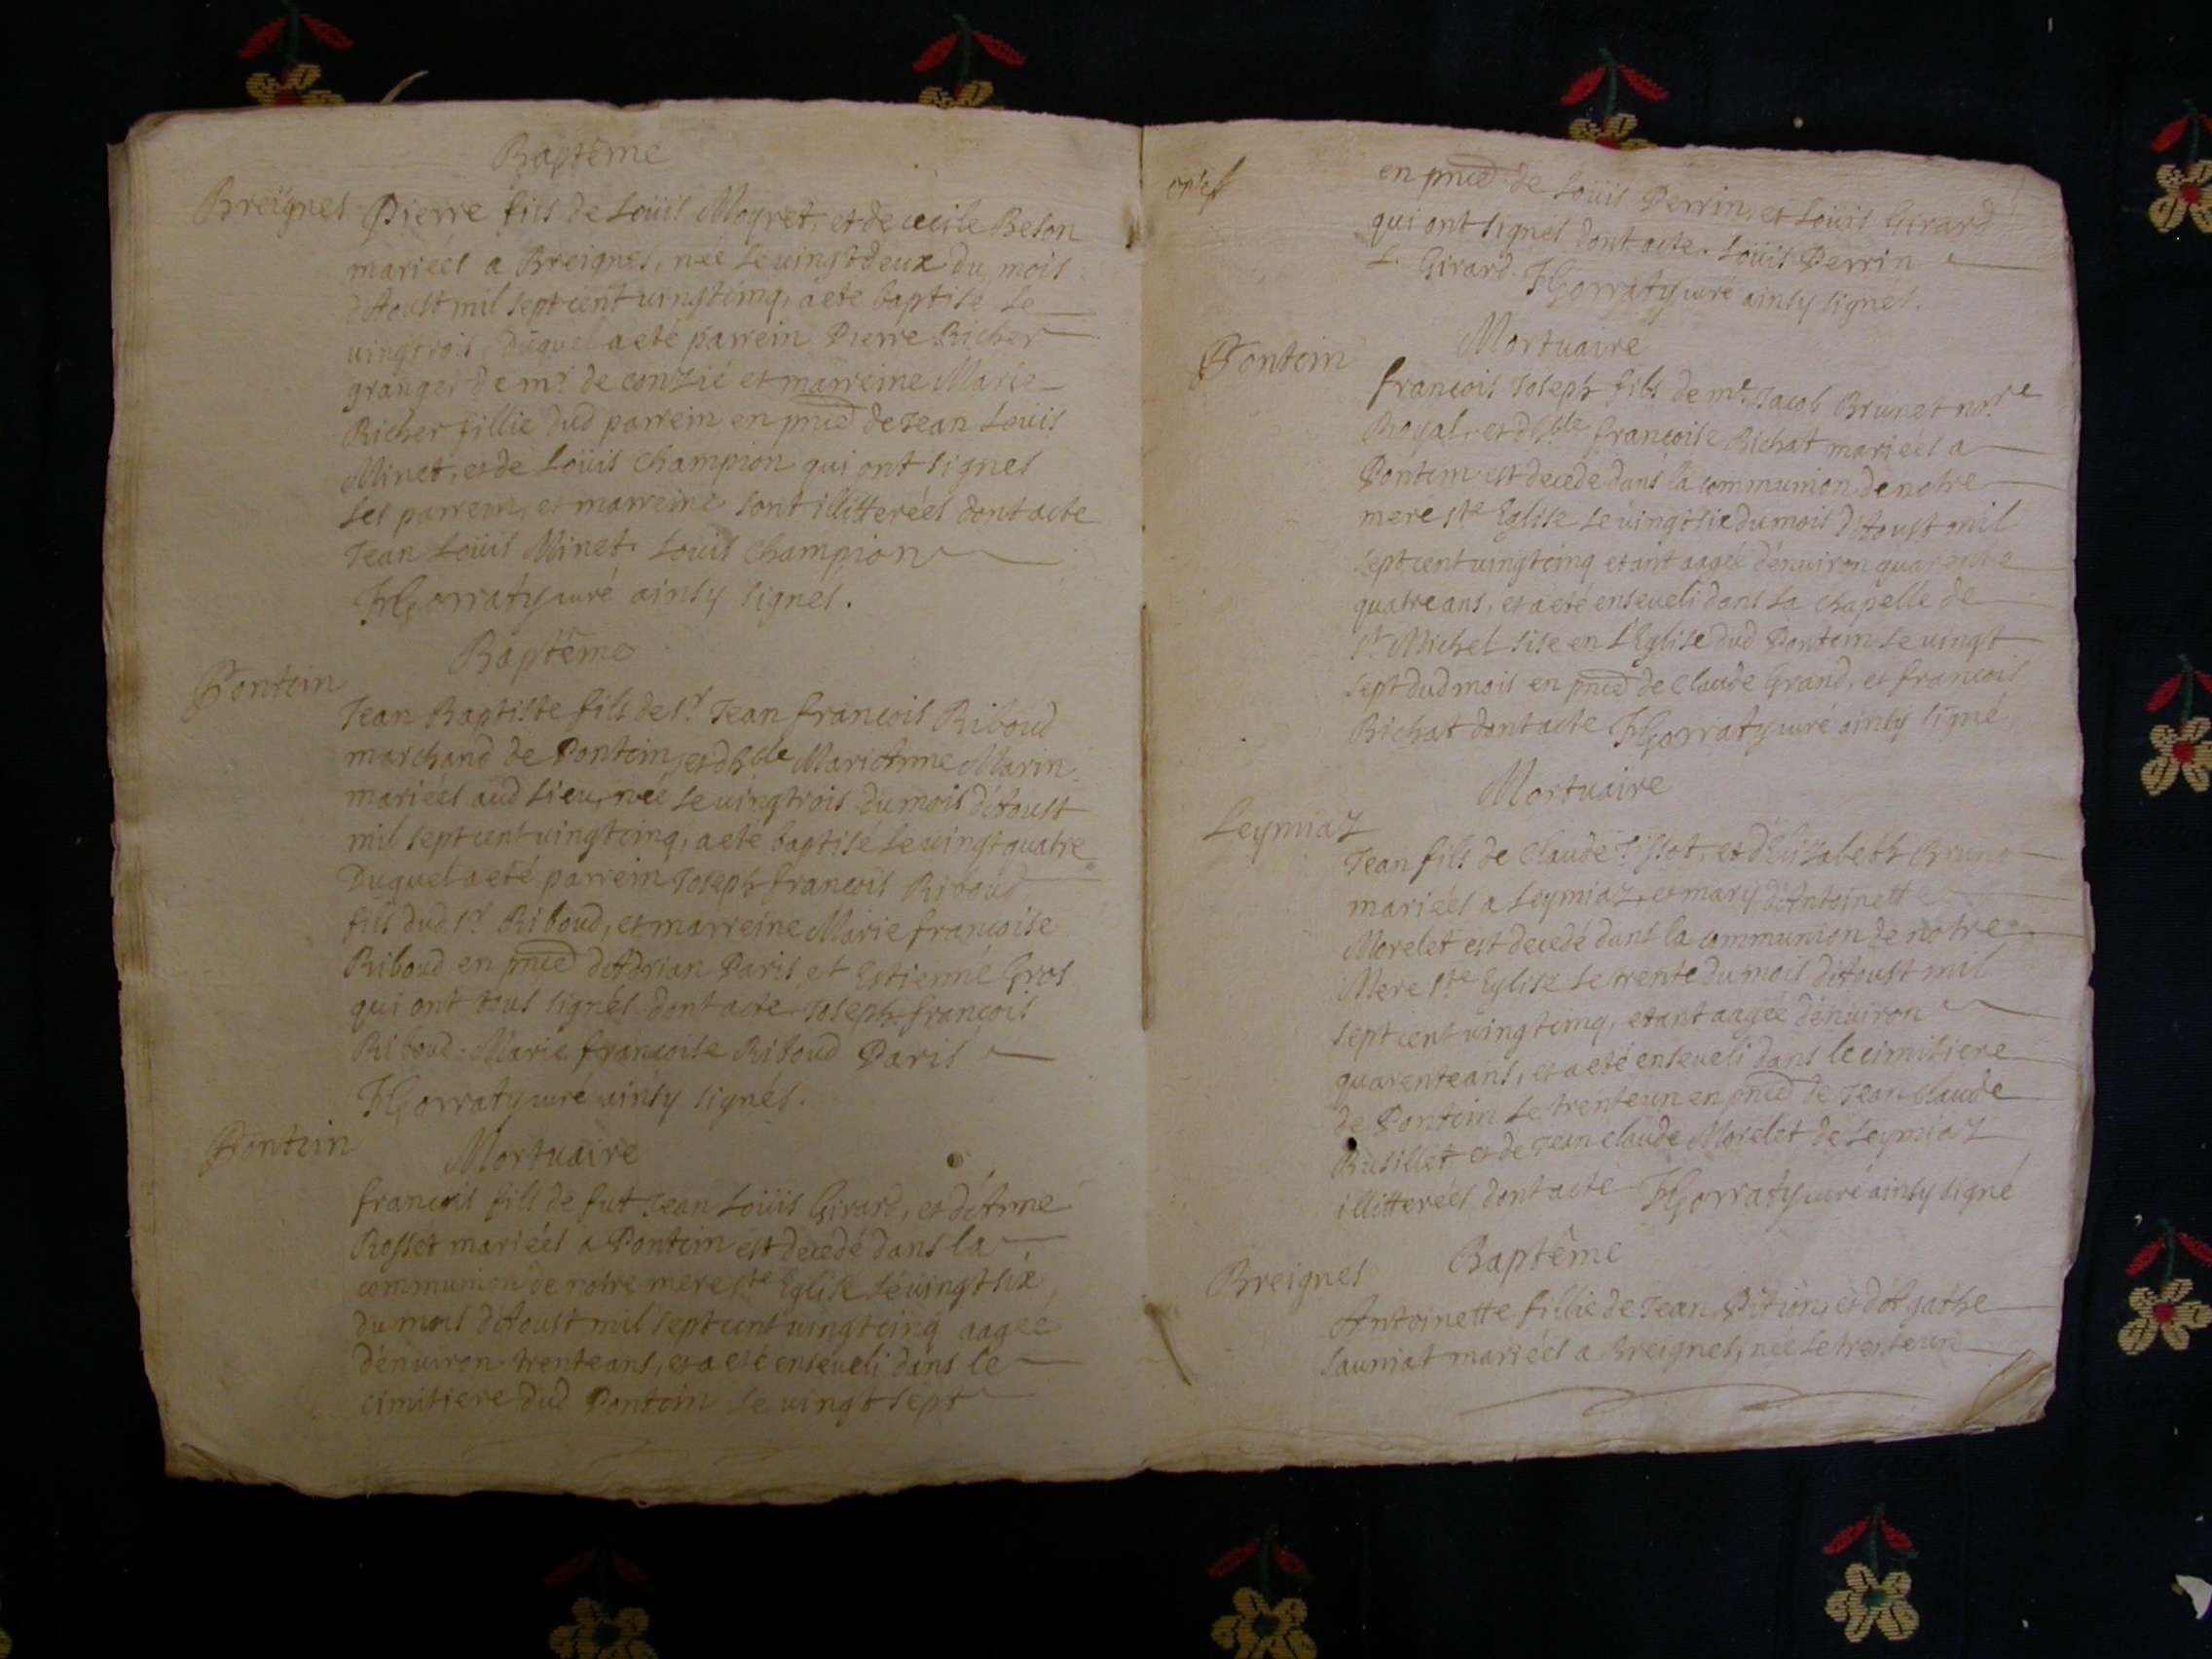 Baptême
Breignes Pierre fils de Loüis Moyret, et de cecile Belon
mariéés a Breignes, néé le vingtdeux du mois
d'Aoust mil sept cent vingtcinq, a eté baptisé le
vingtrois, duquel a eté parrein Pierre Richer
granger de mr. de conzié et marreine Marie
Richer fillie dud parrein en pnce de Jean Loüis
Minet, et de Loüis Champion qui ont signes
les parrein, et marreine sont illitteréés dont acte
Jean Loüis Minet. Loüis Champion
Gorraty curé ainsy signes.
Baptême
Pontein
Jean Baptiste fils de sr. Jean françois Riboud
marchand de Pontein, et dhble Marianne Marin
mariéés aud lieu, néé le vingtrois du mois d'Aoust
mil sept cent vingtcinq, a eté baptisé le vingtquatre
Duquel a eté parrein Joseph françois Riboud
fils dud sr. Riboud, et marreine Marie françoise
Riboud en pnce d'Adrian Paris, et Estienne Gros
qui ont tous signés dont acte Joseph françois
Riboud. Marie françoise Riboud Paris
Gorraty curé ainsy signés.
Pontein
Mortuaire
françois fils de fut Jean Loüis Girard, et d'Anne
Rosset mariéés a Pontein est decedé dans la
communion de notre mere ste Eglise le vingt six
du mois d'Aoust mil sept cent vingtcinq aagéé
d'énuiron trente ans, et a eté enseueli dans le
cimitiere dud Pontein le vingt sept
en pnce de Loüis Perrin, et Loüis Girard
qui ont signés dont acte. Loüis Perrin
L. Girard. Gorraty curé ainsy signés.
Mortuaire
Pontein
françois Joseph fils de mr. Jacob Brunet nore
Royal, et dhble françoise Richat mariéés a
Pontein est decedé dans la communion de notre
mere ste Eglise le vingtsix du mois d'Aoust mil
sept cent vingtcinq etant aagéé d'énuiron quarente
quatre ans, et a eté enseueli dans la chapelle de
st. Michel sise en L'Eglise dud Pontein le vingt
sept dud mois en pnce de Claude Grand, et françois
Richat dont acte Gorraty curé ainsy signé
Mortuaire
Leymiaz
Jean fils de Claude et d'Elizabeth Brune
mariéés a Leymiaz, et mary d'Antoinette
Morelet est decedé dans la communion de notre
Mere ste Eglise le trente du mois d'Aoust mil
sept cent vingtcinq, etant aagéé d'énuiron
quarente ans, et a eté enseueli dans le cimitiere
de Pontein le trenteun en pnce de Jean Claude
Busillet et de Jean Claude Morelet de Leymiaz
illitteréés dont acte Gorraty curé ainsy signé
Breignes Baptême
Antoinette fillie de Jean Pition, et d'Agathe
Sauniat mariéés a Breignes, néé le trenteun